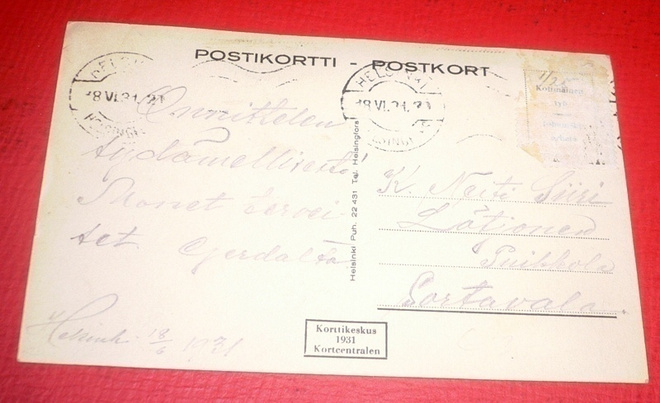 POSTIKORTTI - POSTKORT
HELSINKI
18.VI.31.21
HELSINGFORS
HELSINKI
18.VI.31.21
HELSINGFORS
Kotimaista
työ
Onnittelen
sydämellisesti!
Monet tervei
set Gerdalta
Helsinki 18/6 1931
Helsinki Puh. 22 431 Tel. Helsingfors
K. Neiti Siiri
Lötjonen
Puikkola
Sortavala.
Korttikeskus
1931
Kortcentralen